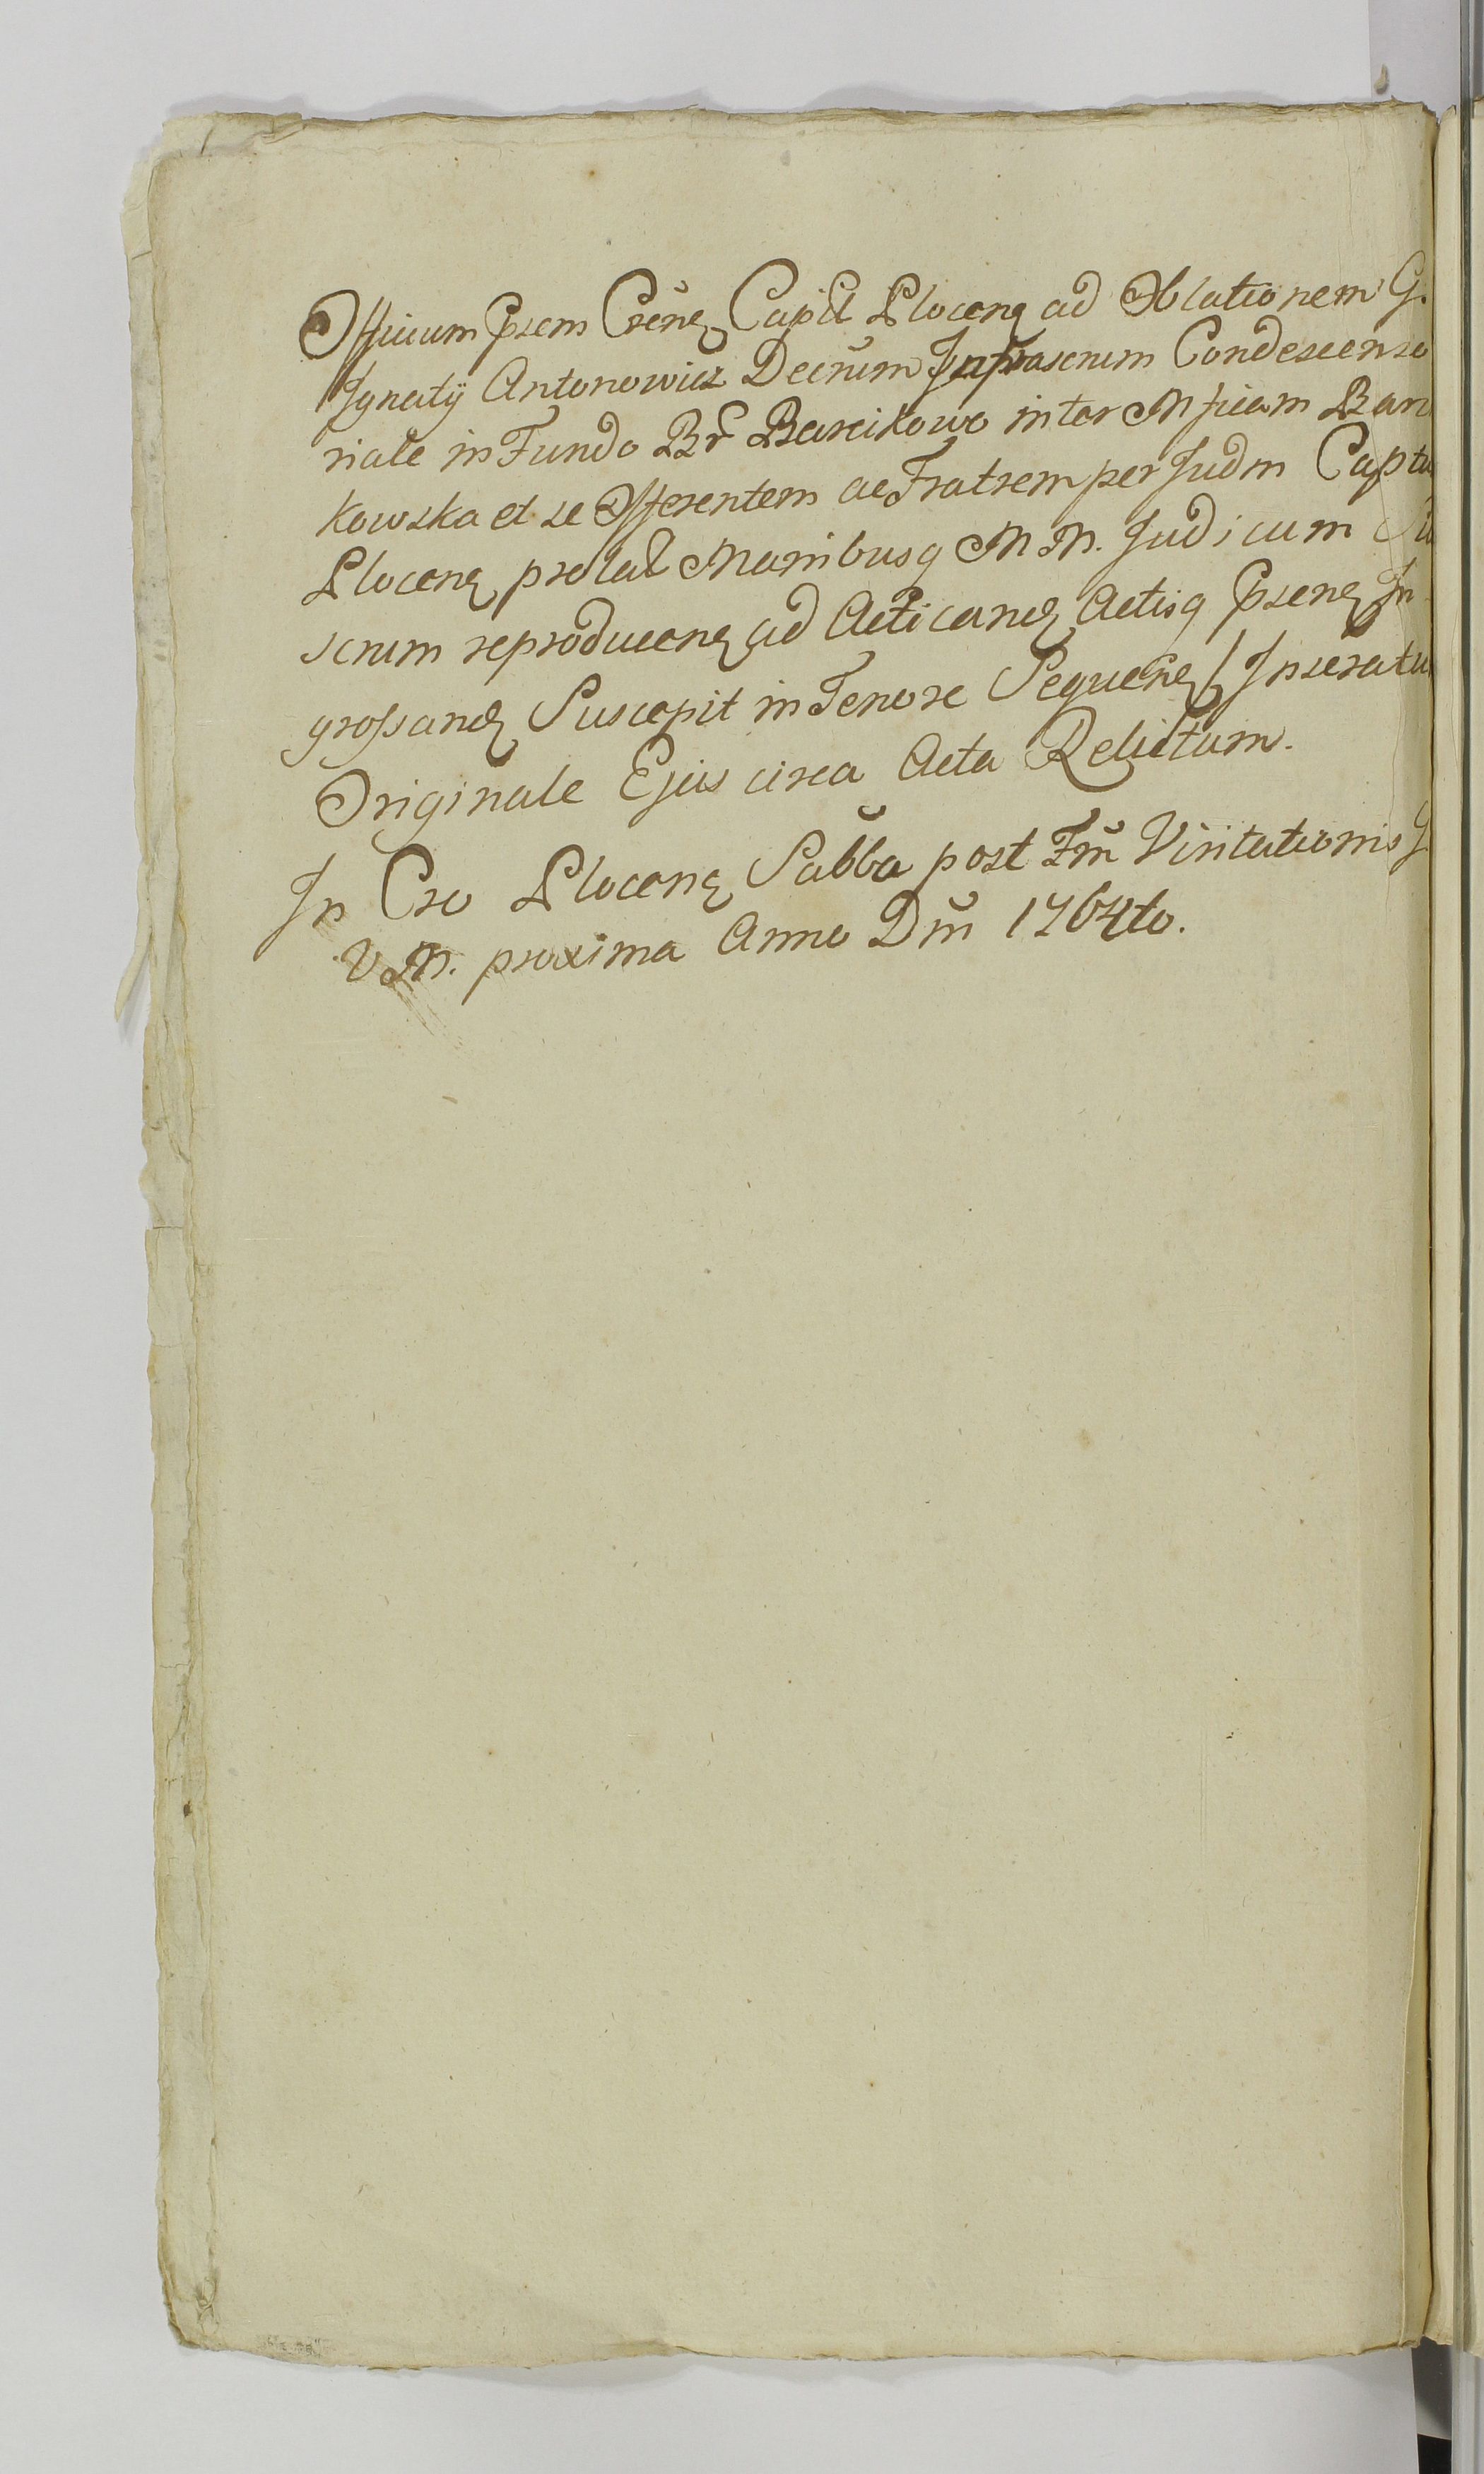 Officium Psens Crense Capitl Plocens ad Oblationem G.
Ignatij Antonowicz Decrum Infrascrum Condescenso
riale in Fundo Br Barcikowo inter Mficam Barci
kowska et se Offerentem ac Fratrem per Judm Captu
Plocens prolat Manibusq M M. Judicum
scrum reproducens ad Acticand Actisq Psens In
grossand Suscepit in Tenore Sequens / Inseratu
Originale Ejus circa Acta Relictum.
In Cro Plocens Sabba post Fm Visitationis
V M. proxima Anno Dm 1764to.